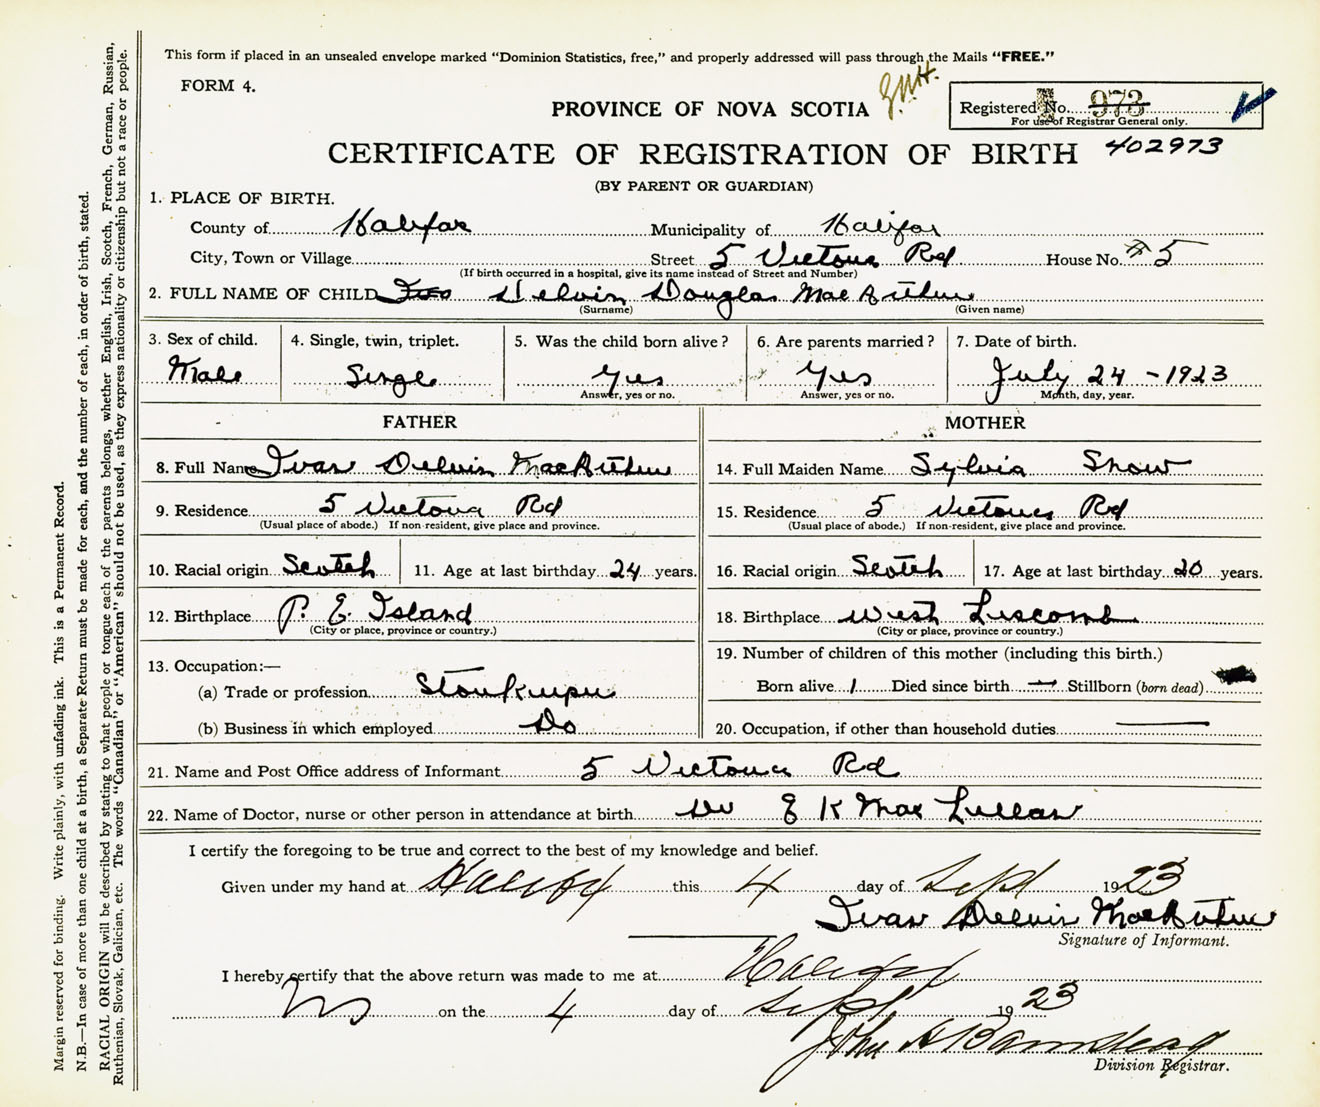 This form if placed in an unsealed envelope marked "Dominion Statistics, free," and properly addressed will pass through the Mails "FREE."
FORM 4.
PROVINCE OF NOVA SCOTIA
Registered No. 973
For use of Registrar General only.
CERTIFICATE OF REGISTRATION OF BIRTH 402973
(BY PARENT OR GUARDIAN)
1. PLACE OF BIRTH.
County of Halifax Municipality of Halifax
City, Town or Village Street 5 Victoria Rd House No. #5
(If birth occurred in a hospital, give its name instead of Street and Number)
2. FULL NAME OF CHILD Delvin Douglas MacArthur
(Surname) (Given name)
3. Sex of child. 4. Single, twin, triplet. 5. Was the child born alive? 6. Are parents married? 7. Date of birth.
Male Single Yes Yes July 24 - 1923
Answer, yes or no. Answer, yes or no. Month, day, year.
FATHER MOTHER
8. Full Name Ivan Delvin MacArthur 14. Full Maiden Name Sylvia Snow
9. Residence 5 Victoria Rd 15. Residence 5 Victoria Rd
(Usual place of abode.) If non-resident, give place and province. (Usual place of abode.) If non-resident, give place and province.
10. Racial origin Scotch 11. Age at last birthday 24 years. 16. Racial origin Scotch 17. Age at last birthday 20 years.
12. Birthplace P. E. Island 18. Birthplace West Liscomb
(City or place, province or country.) (City or place, province or country.)
13. Occupation:— 19. Number of children of this mother (including this birth.)
(a) Trade or profession Storekeeper Born alive 1 Died since birth — Stillborn (born dead)
(b) Business in which employed Do 20. Occupation, if other than household duties —
21. Name and Post Office address of Informant 5 Victoria Rd
22. Name of Doctor, nurse or other person in attendance at birth Dr E K MacLellan
I certify the foregoing to be true and correct to the best of my knowledge and belief.
Given under my hand at Halifax this 4 day of Sept 1923
Ivan Delvin MacArthur
Signature of Informant.
I hereby certify that the above return was made to me at Halifax
NS on the 4 day of Sept 1923
John A Barnstead
Division Registrar.
Margin reserved for binding. Write plainly, with unfading ink. This is a Permanent Record.
N.B.—In case of more than one child at a birth, a Separate Return must be made for each, and the number of each, in order of birth, stated.
RACIAL ORIGIN will be described by stating to what people or tongue each of the parents belongs, whether English, Irish, Scotch, French, German, Russian,
Ruthenian, Slovak, Galician, etc. The words "Canadian" or "American" should not be used, as they express nationality or citizenship but not a race or people.